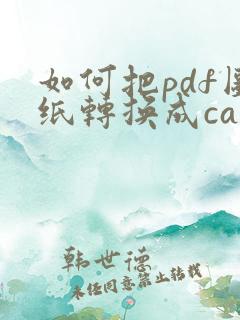 如何把pdf
纸轉换成ca
韩世德
未经同意禁止转载